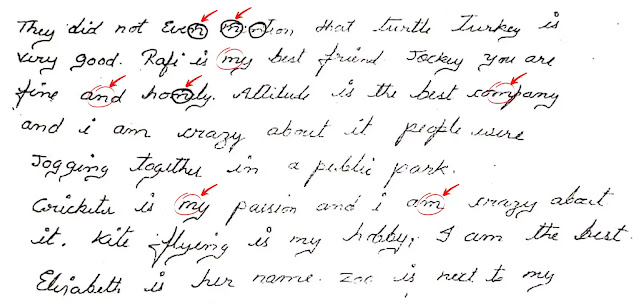 They did not Even mention that turtle Turkey is
very good. Rafi is my best friend Jockey you are
fine and homly. Attitude is the best company
and i am crazy about it people were
Jogging together in a public park.
Cricketer is my passion and i am crazy about
it. Kite flying is my hobby, I am the best.
Elizabeth is her name. Zoo is next to my